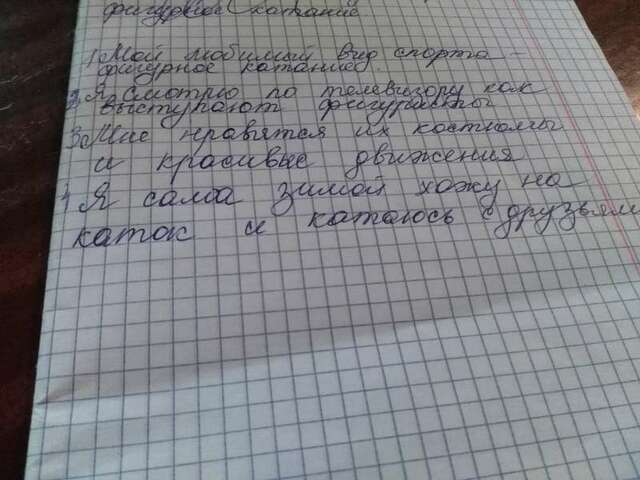 фигурное катание
1 Мой любимый вид спорта -
фигурное катание.
2. Я смотрю по телевизору как
выступают фигуристы
3 Мне нравятся их костюмы
и красивые движения
4 Я сама зимой хожу на
каток и катаюсь с друзьям